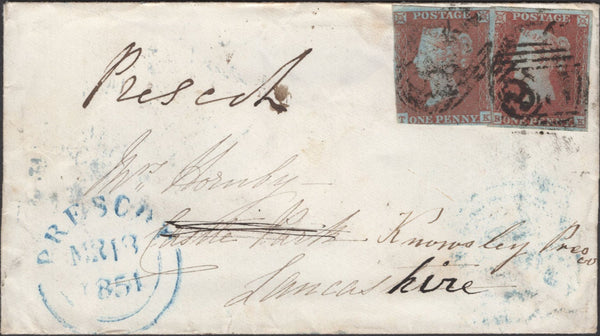 POSTAGE POSTAGE
T K ONE PENNY
ONE PENNY
Prescot
Mrs Hornby
Castle Park Knowsley Pres
co
Lancashire
PRESCOT
MR 13
1851